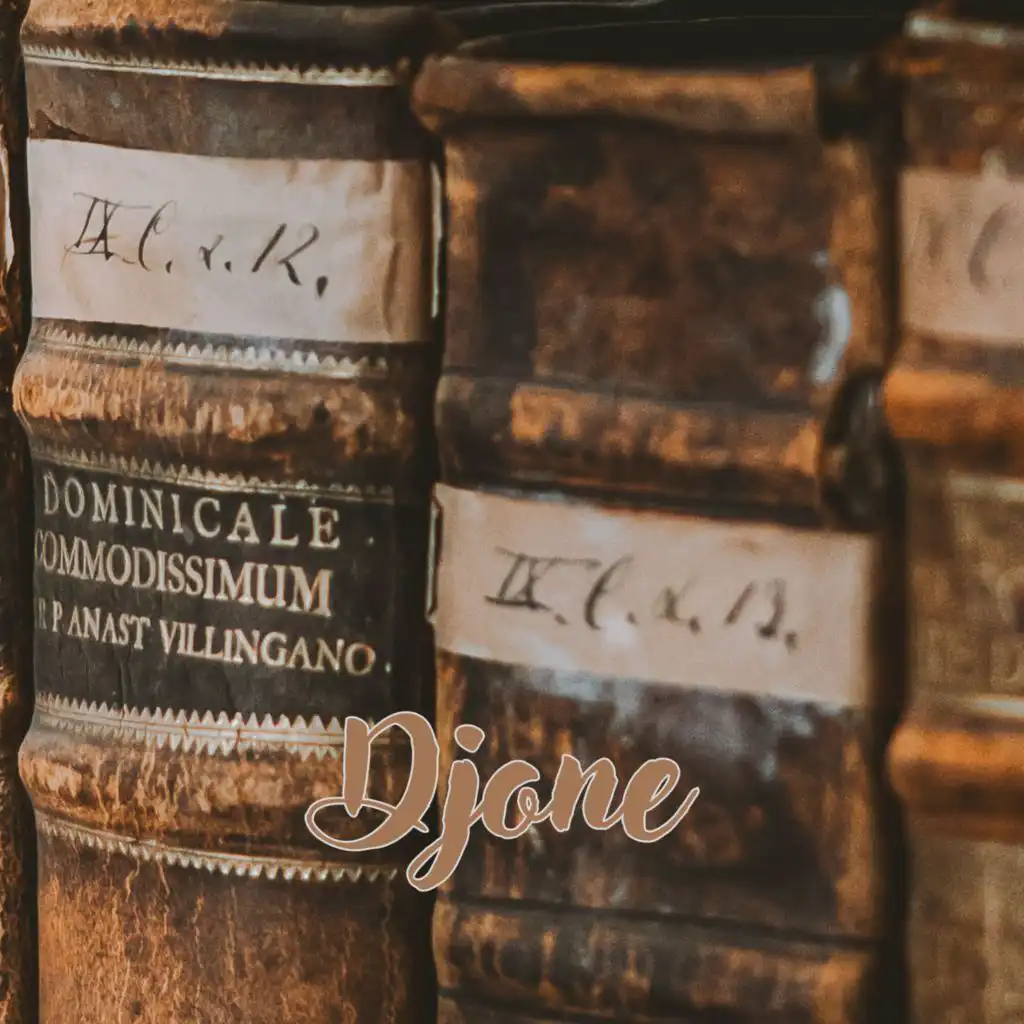 IX. C. α. 12.
DOMINICALE
COMMODISSIMUM
R P ANAST VILLINGANO.
IX. C. α. 13.
Djone